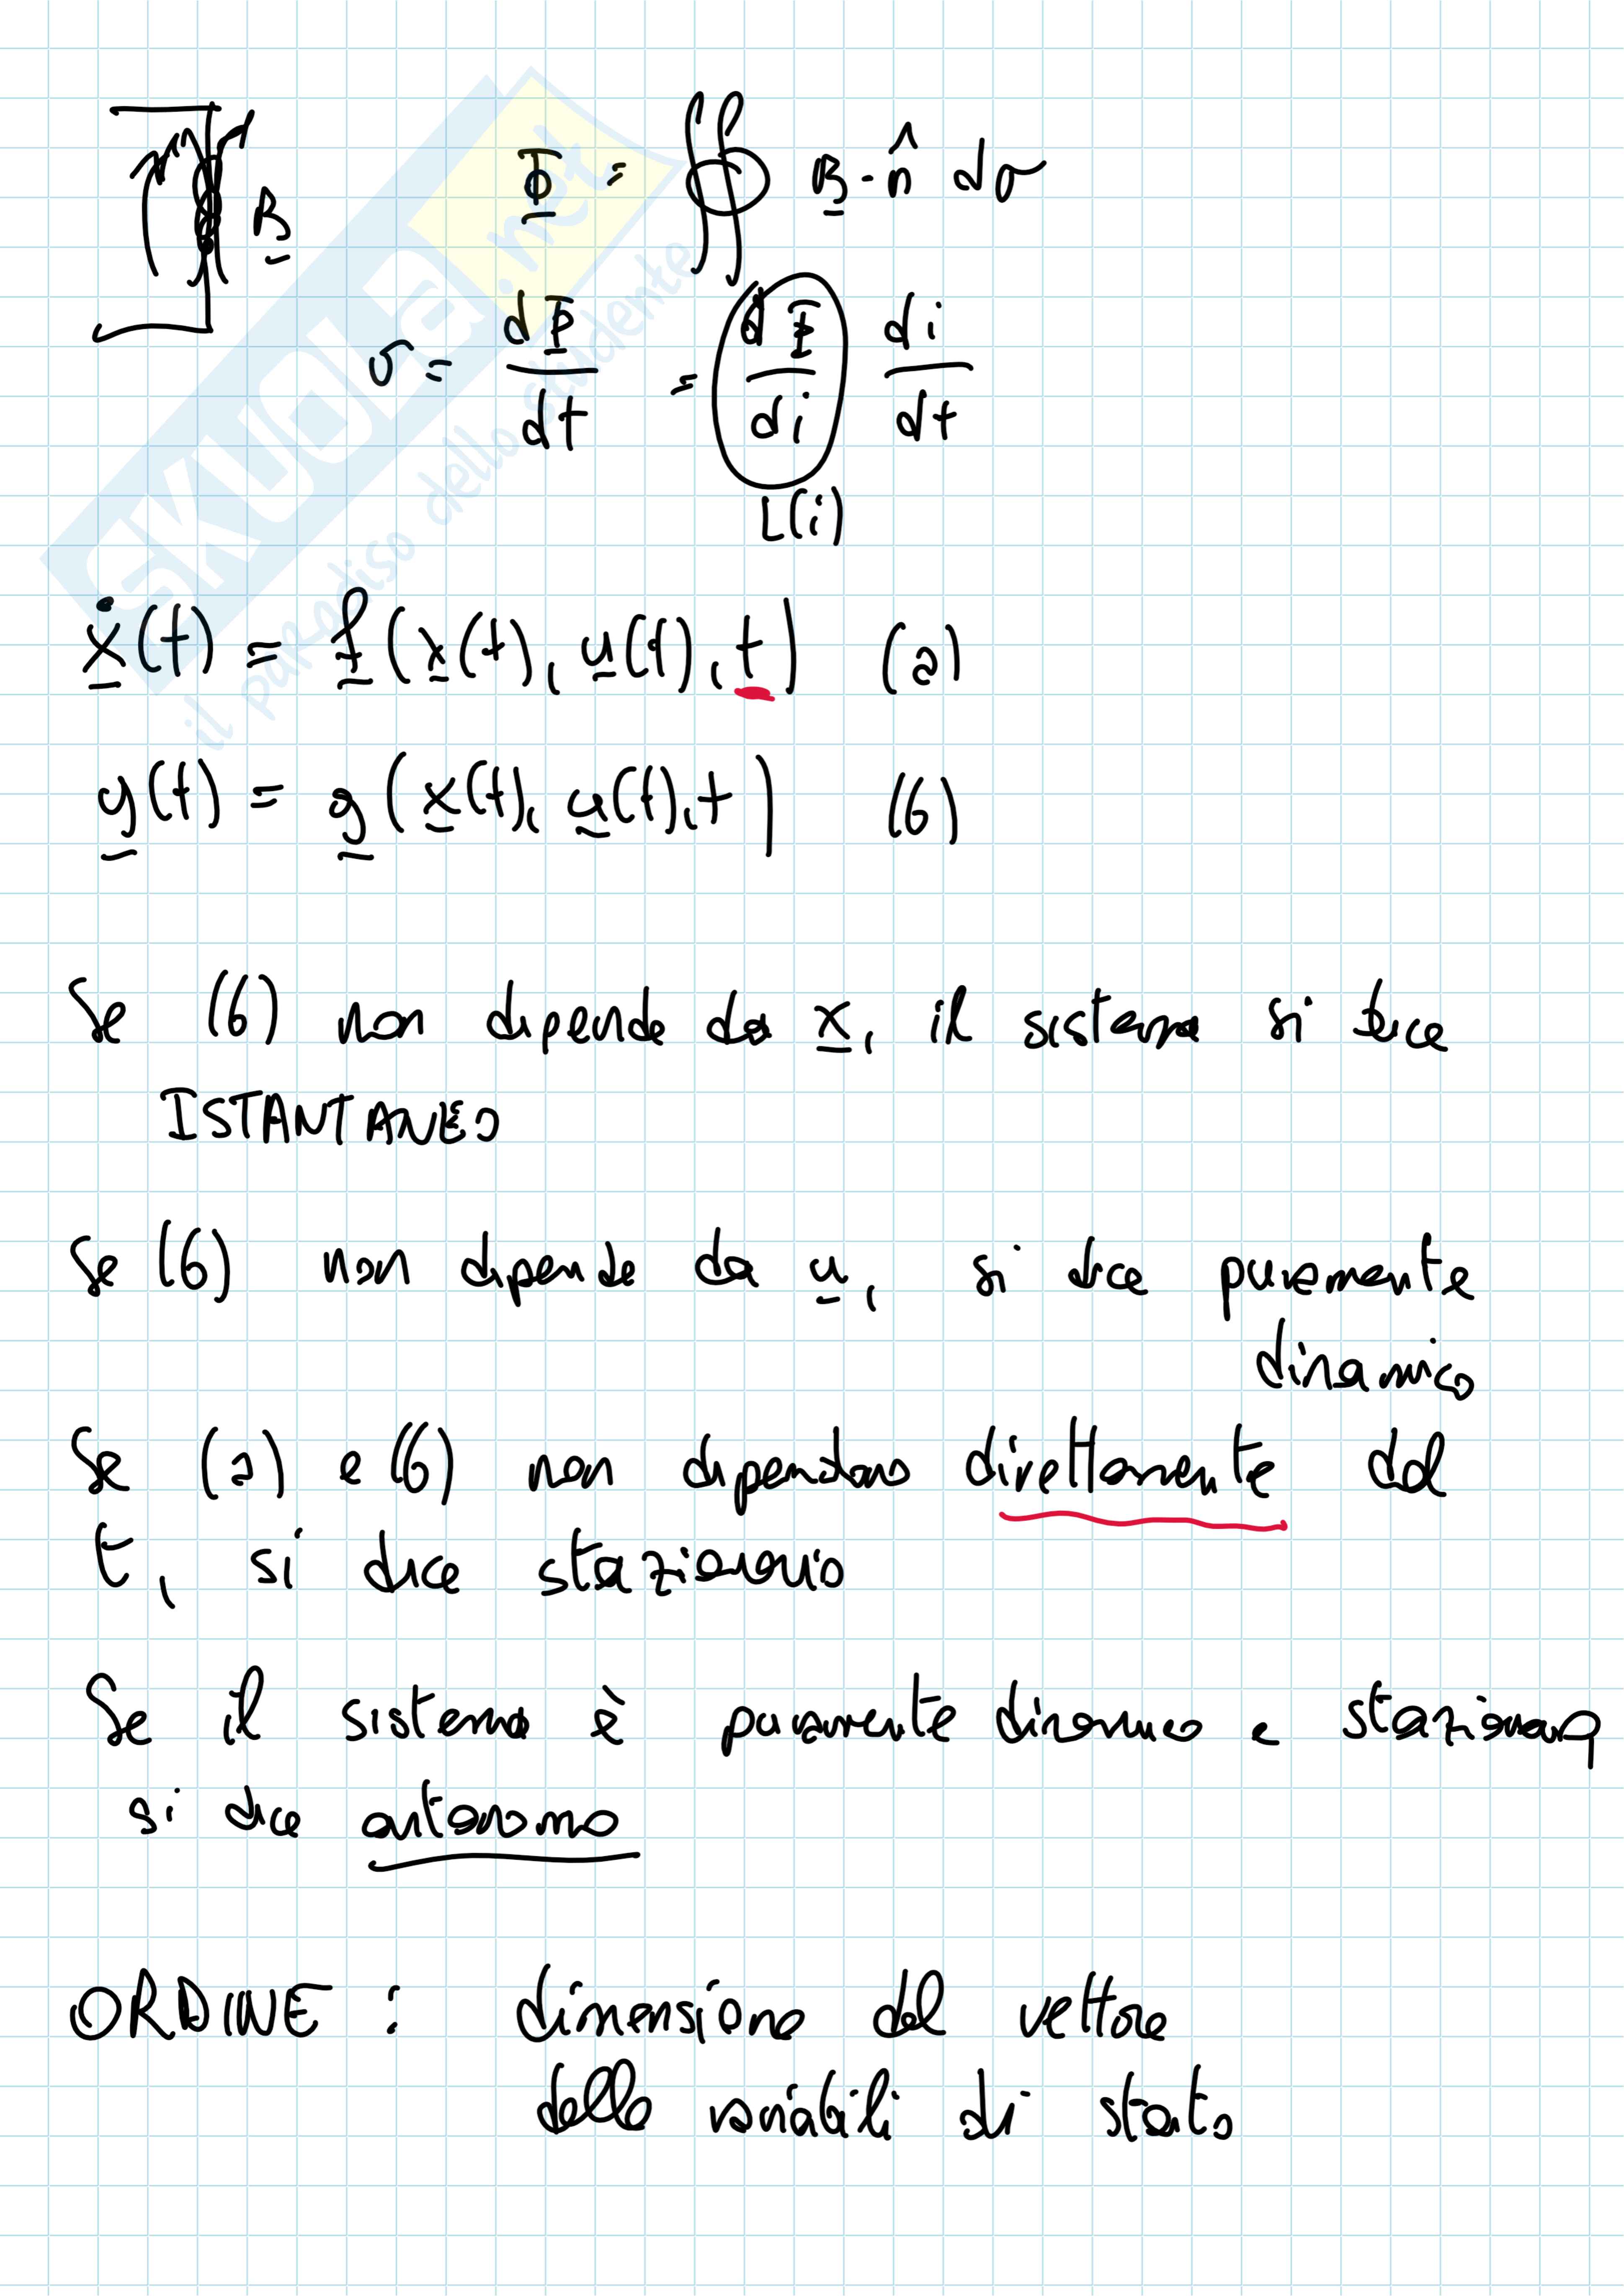 B
Φ = ∯ B · n̂ dσ
v = dΦ/dt = dΦ/di di/dt
L(i)
ẋ(t) = f(x(t), u(t), t) (a)
y(t) = g(x(t), u(t), t) (b)
Se (b) non dipende da x, il sistema si dice
ISTANTANEO
Se (b) non dipende da u, si dice puramente
dinamico
Se (a) e (b) non dipendono direttamente dal
t, si dice stazionario
Se il sistema è puramente dinamico e stazionario
si dice autonomo
ORDINE : dimensione del vettore
delle variabili di stato
SKUOLA.net
il paradiso dello studente